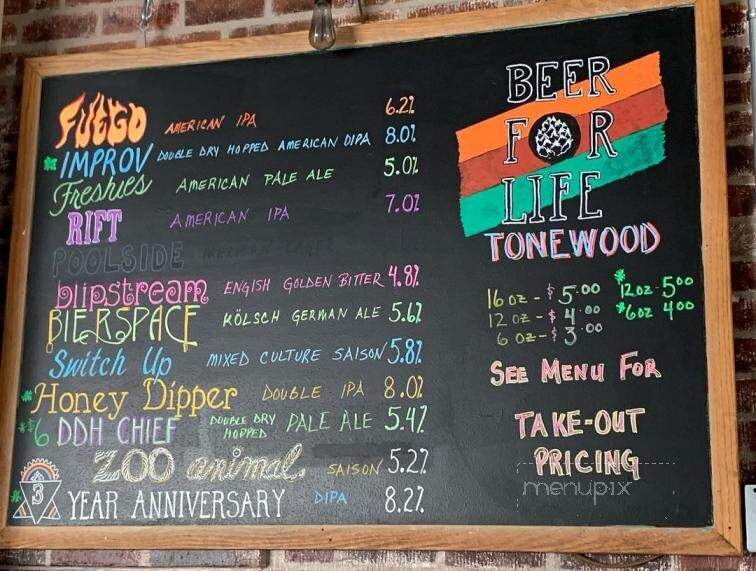 FUEGO AMERICAN IPA 6.2%
* IMPROV DOUBLE DRY HOPPED AMERICAN DIPA 8.0%
Freshies AMERICAN PALE ALE 5.0%
RIFT AMERICAN IPA 7.0%
POOLSIDE
blipstream ENGISH GOLDEN BITTER 4.8%
BIERSPACE KÖLSCH GERMAN ALE 5.6%
Switch Up MIXED CULTURE SAISON 5.8%
* Honey Dipper DOUBLE IPA 8.0%
*$6 DDH CHIEF DOUBLE DRY HOPPED PALE ALE 5.4%
ZOO animal. SAISON 5.2%
* 3 YEAR ANNIVERSARY DIPA 8.2%
BEER
FOR
LIFE
TONEWOOD
16 oz - $5.00
12 oz - $4.00
6 oz - $3.00
* 12oz - 5.00
* 6oz 4.00
SEE MENU FOR
TAKE-OUT
PRICING
menupix